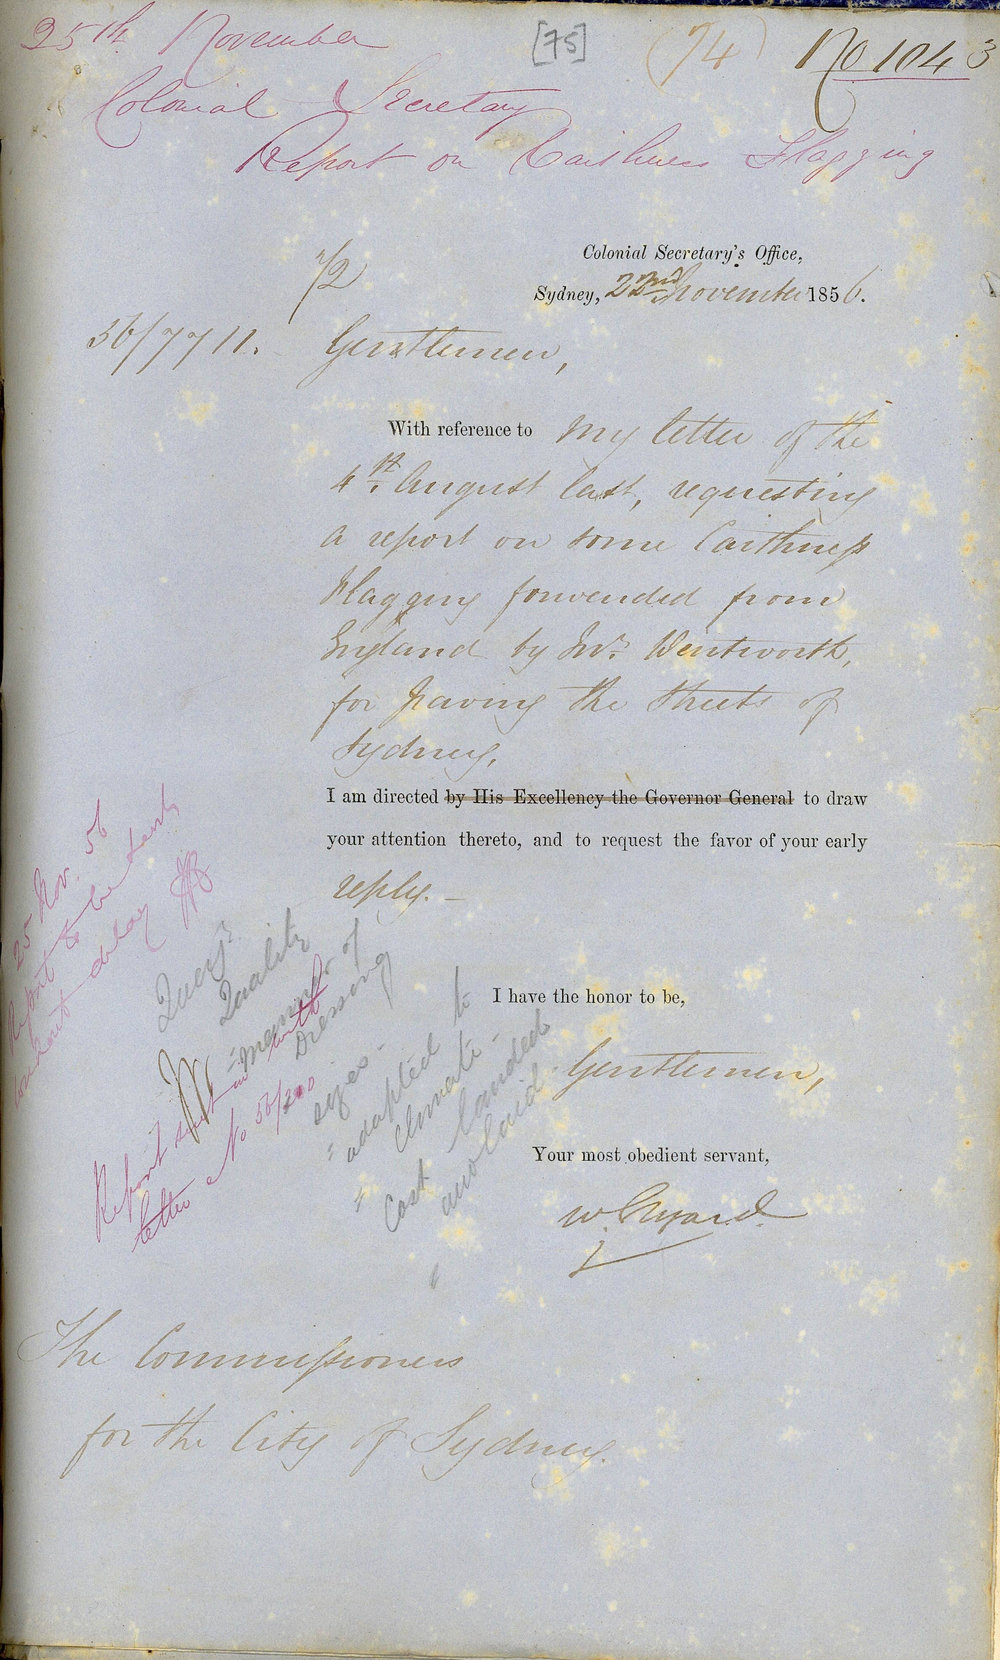 25th November [75] (74) No 1043
Colonial Secretary
Report on Caithness Flagging
Colonial Secretary's Office,
72
Sydney, 22nd November 1856.
56/7711.
Gentlemen,
With reference to my letter of the
4st. August last, requesting
a report on some Caithness
Flagging forwarded from
England by Mr. Wentworth,
for paving the Streets of
Sydney.
I am directed by His Excellency the Governor General to draw
your attention thereto, and to request the favor of your early
reply. —
25 Nov. 56
Report to be sent
without delay
Query?
Quality
" manner of
Dressing
sizes -
" adapted to
climate -
" Cost landed
and laid
Report sent in with
letter No 56/200
I have the honor to be,
Gentlemen,
Your most obedient servant,
W. Elyard.
The Commissioners
for the City of Sydney.